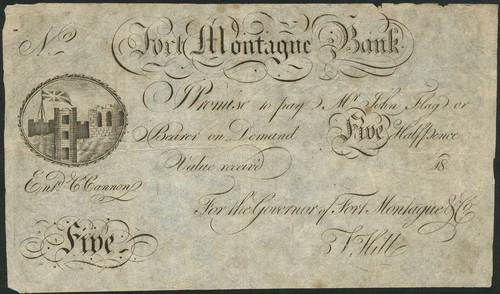 No
Fort Montague Bank
I Promise to pay Mr. John Flag or
Bearer on Demand Five Halfpence
Value receiv'd 18
Ent'd C Cannon
For the Governor of Fort Montague & Co
Five
T. Hill